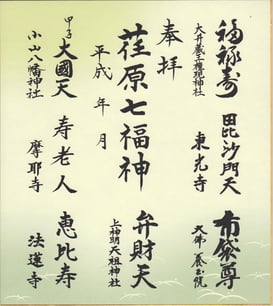 福禄寿
大井蔵王権現神社
毘沙門天
東光寺
布袋尊
大佛 養玉院
奉拝
荏原七福神
平成 年 月
弁財天
上神明天祖神社
甲子 大國天
小山八幡神社
寿老人
摩耶寺
恵比寿
法蓮寺